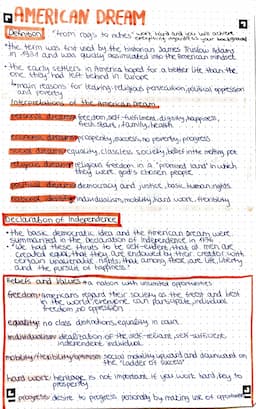 AMERICAN DREAM
Definition: "from rags to riches" work hard and you will achieve
everything regardless your background
• the term was first used by the historian James Truslow Adams
in 1931 and was quickly assimilated into the American mindset
• the early settlers in America hoped for a better life than the
one they had left behind in Europe
4 main reasons for leaving: religious persecution, political oppression
and poverty
Interpretations of the American Dream
personal dream: freedom, self-fulfilment, dignity, happiness,
fresh start, family, health
economic dream: prosperity, success, no poverty, progress
social dream: equality, classless society, belief in the melting pot
religious dream: religious freedom in a "promised land" in which
they were god's chosen people
political dream: democracy and justice, basic human rights
national dream: individualism, mobility, hard work, flexibility
Declaration of Independence
• the basic democratic idea and the American Dream were
summarized in the Declaration of Independence in 1776
• "We hold these truths to be self-evident, that all men are
created equal, that they are endowed by their creator with
certain unalienable rights, that among these are life, liberty
and the pursuit of happiness."
Beliefs and Values → a nation with unlimited opportunities
freedom: Americans regard their society as the freest and best
in the world, everyone can participate, individual
freedom, no oppression
equality: no class distinctions, equality in court
individualism: idealization of the self-reliant, self-sufficient,
independent individual
mobility/flexibility/optimism: social mobility upward and downward on
the "ladder of success"
hard work: heritage is not important if you work hard, key to
prosperity
progress: desire to progress personally by making use of opportunities